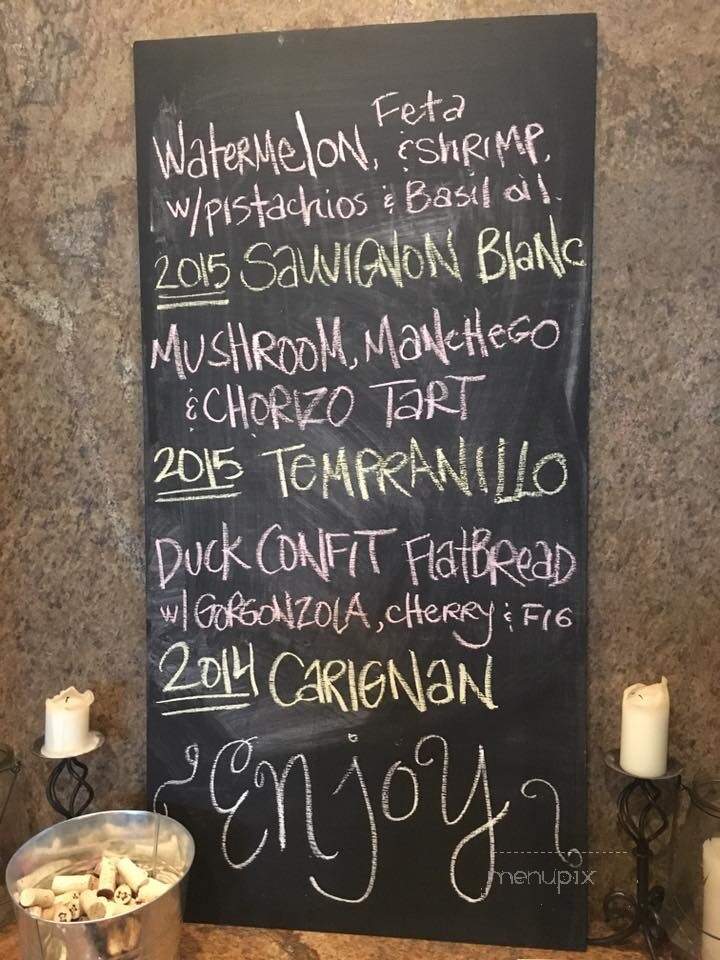 Watermelon, Feta
& Shrimp,
w/pistachios & Basil oil.
2015 Sauvignon Blanc
Mushroom, Manchego
& Chorizo Tart
2015 Tempranillo
Duck Confit Flatbread
w/ Gorgonzola, cherry & Fig
2014 Carignan
Enjoy
menupix